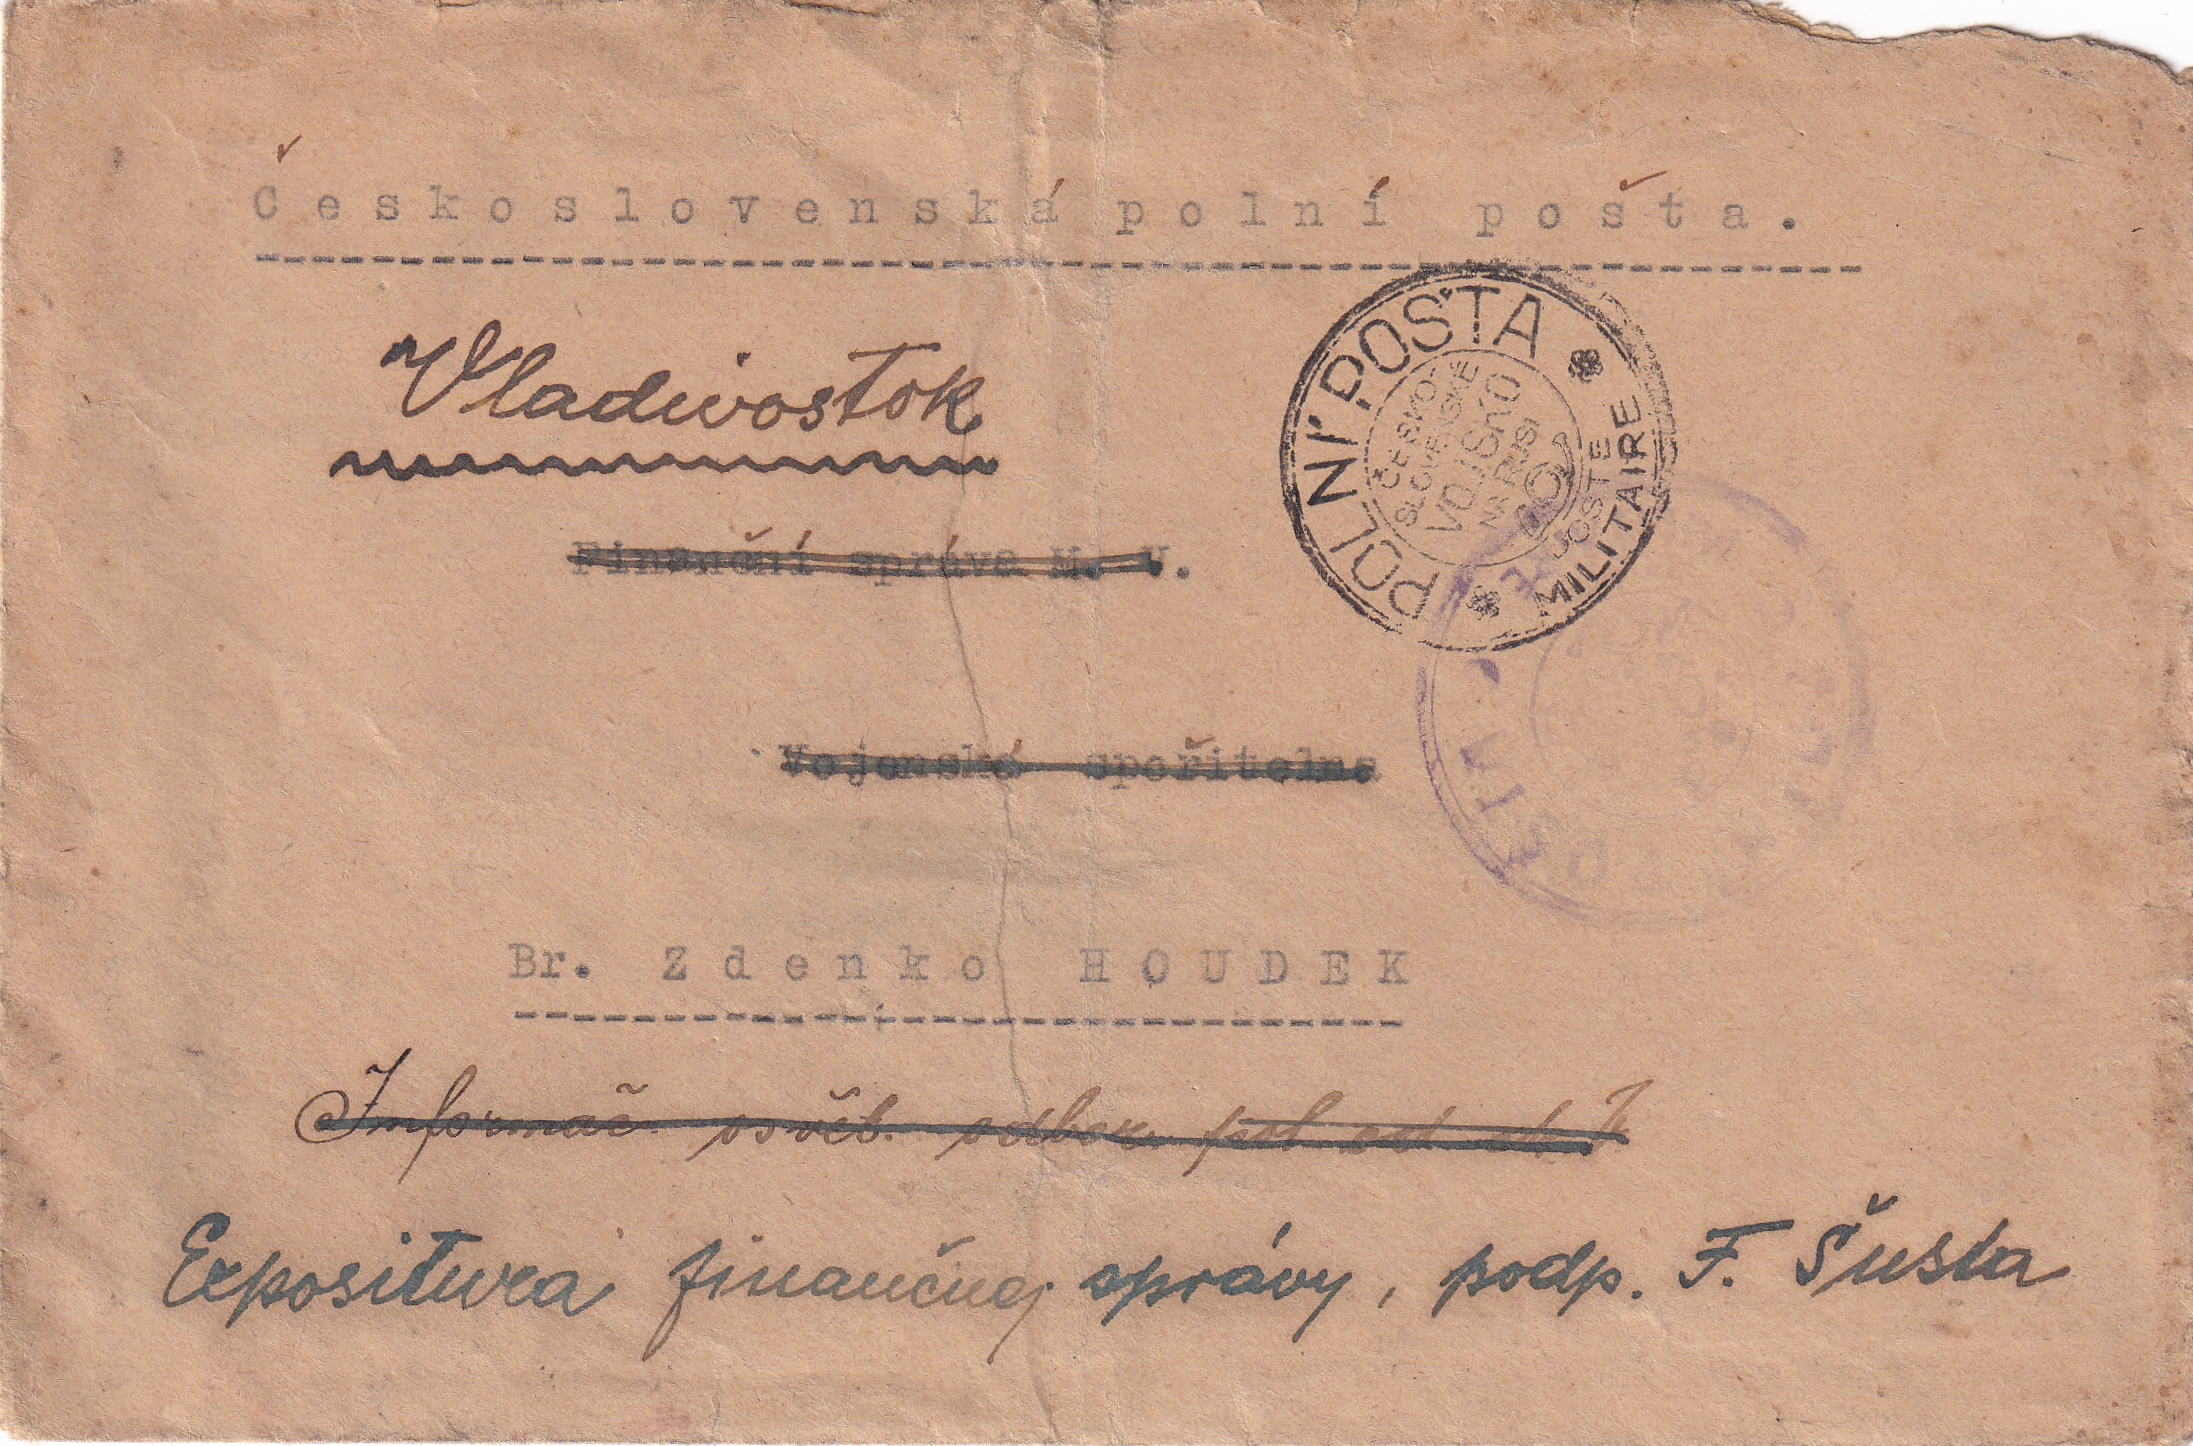 Československá polní pošta.
Vladivostok
Finanční správa M. V.
POLNÍ POŠTA
POSTE MILITAIRE
ČESKO-
SLOVENSKÉ
VOJSKO
NA RUSI
Vojenská spořitelna
Br. Zdenko HOUDEK
Informač. osvěb. odbor
Expositura finančnej správy, podp. F. Šusta